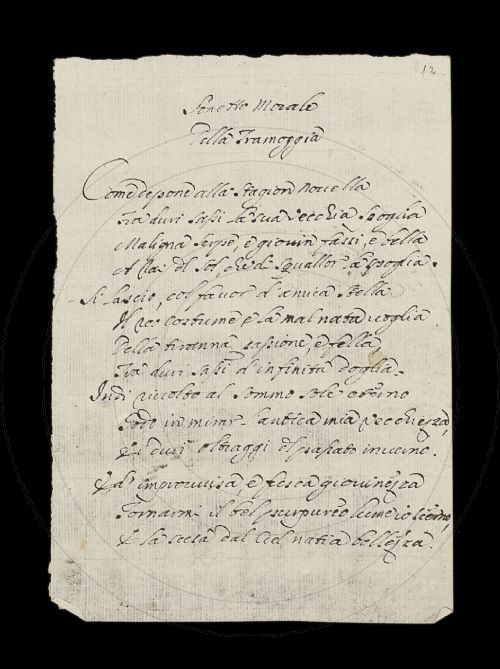 12
Sonetto Morale
Della Tramoggia
Come depone alla Stagion novella
Fra duri Sassi la sua vecchia Spoglia
Maligna Serpe, e giovin fassi, e bella
Al Sol, di Squallor la spoglia.
Si lascio, col favor d'amica Stella
Il rio Costume e la mal nata voglia
Della tiranna passione, e fella
Fra duri Sassi d'infinita doglia.
Indi rivolto al Sommo Sole eterno
Godo in mirar l'antica mia vecchiezza,
E i duri oltraggi del passato inverno.
E d'improvvisa, e fresca giovinezza
Tornarmi il bel purpureo lume io scerno,
E la scesa dal Ciel natia bellezza.